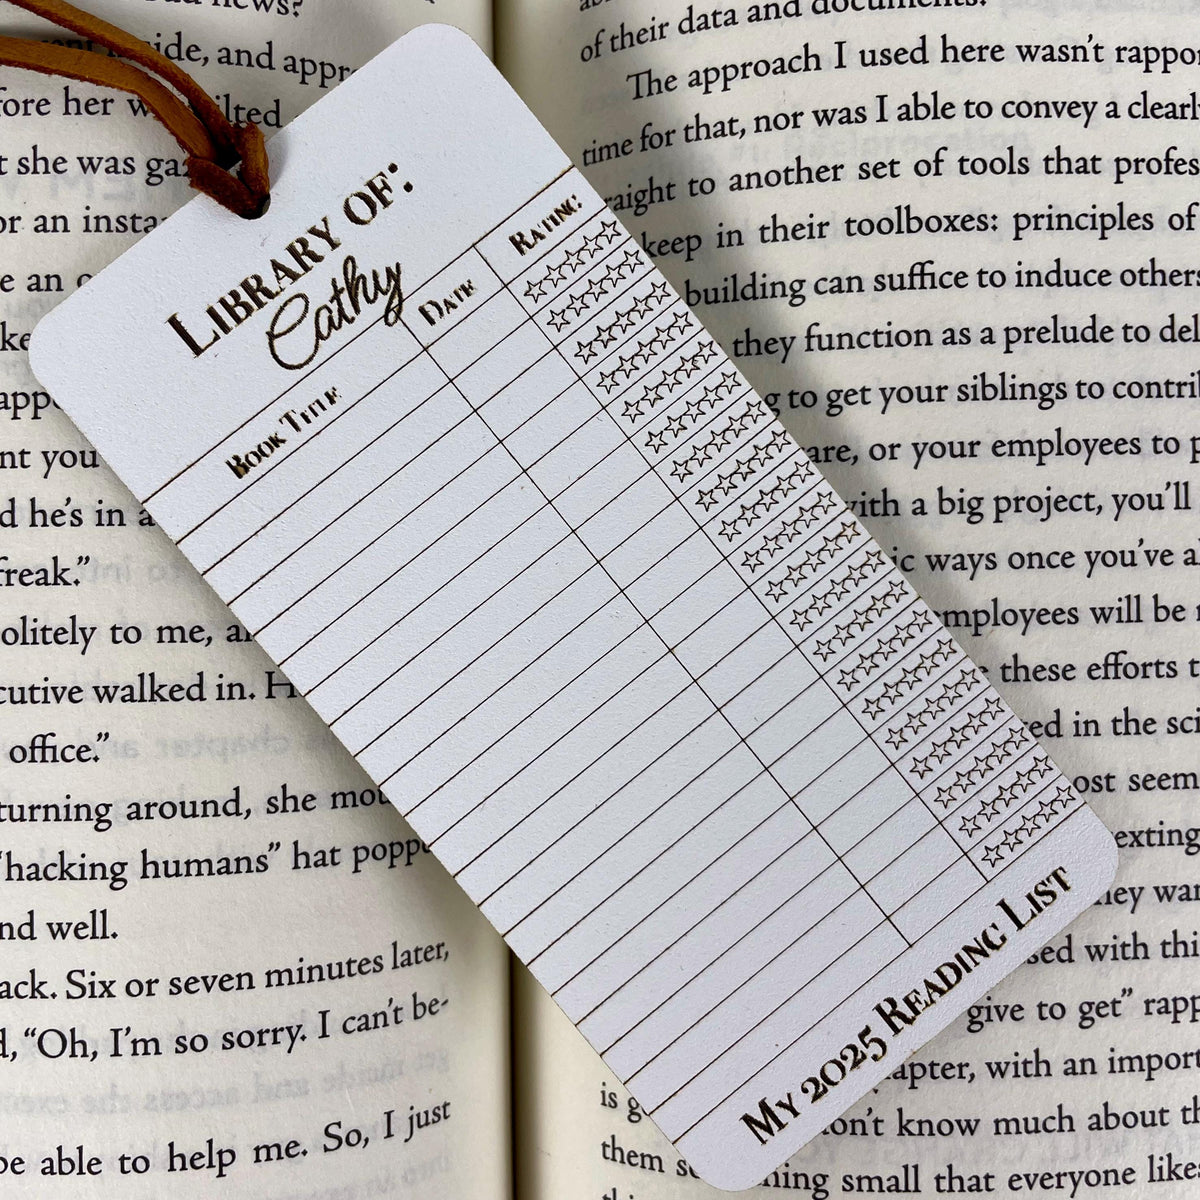 news?
ide, and
fore her
ilted
t she was
or an
e an
nt you
d he's in a
freak."
olitely to me,
cutive walked in.
office."
turning around, she
"hacking humans" hat
nd well.
ack. Six or seven minutes later,
d, "Oh, I'm so sorry. I can't be-
be able to help me. So, I just
LIBRARY OF:
Cathy
BOOK TITLE DATE RATING
MY 2025 READING LIST
of their data and documents.
The approach I used here wasn't
time for that, nor was I able to convey a
raight to another set of tools that
keep in their toolboxes: principles of
building can suffice to induce others
they function as a prelude to
to get your siblings to
are, or your employees to
with a big project, you'll
ic ways once you've
employees will be
these efforts
ed in the
ost seem
exting
they
sed with
give to get"
apter, with an
is
on't know much about
them
hing small that everyone